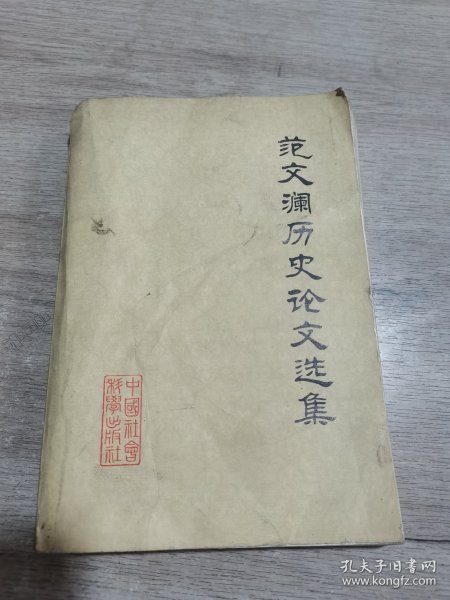 范文澜历史论文选集
中國社會
科學出版社
孔夫子旧书网
www.kongfz.com